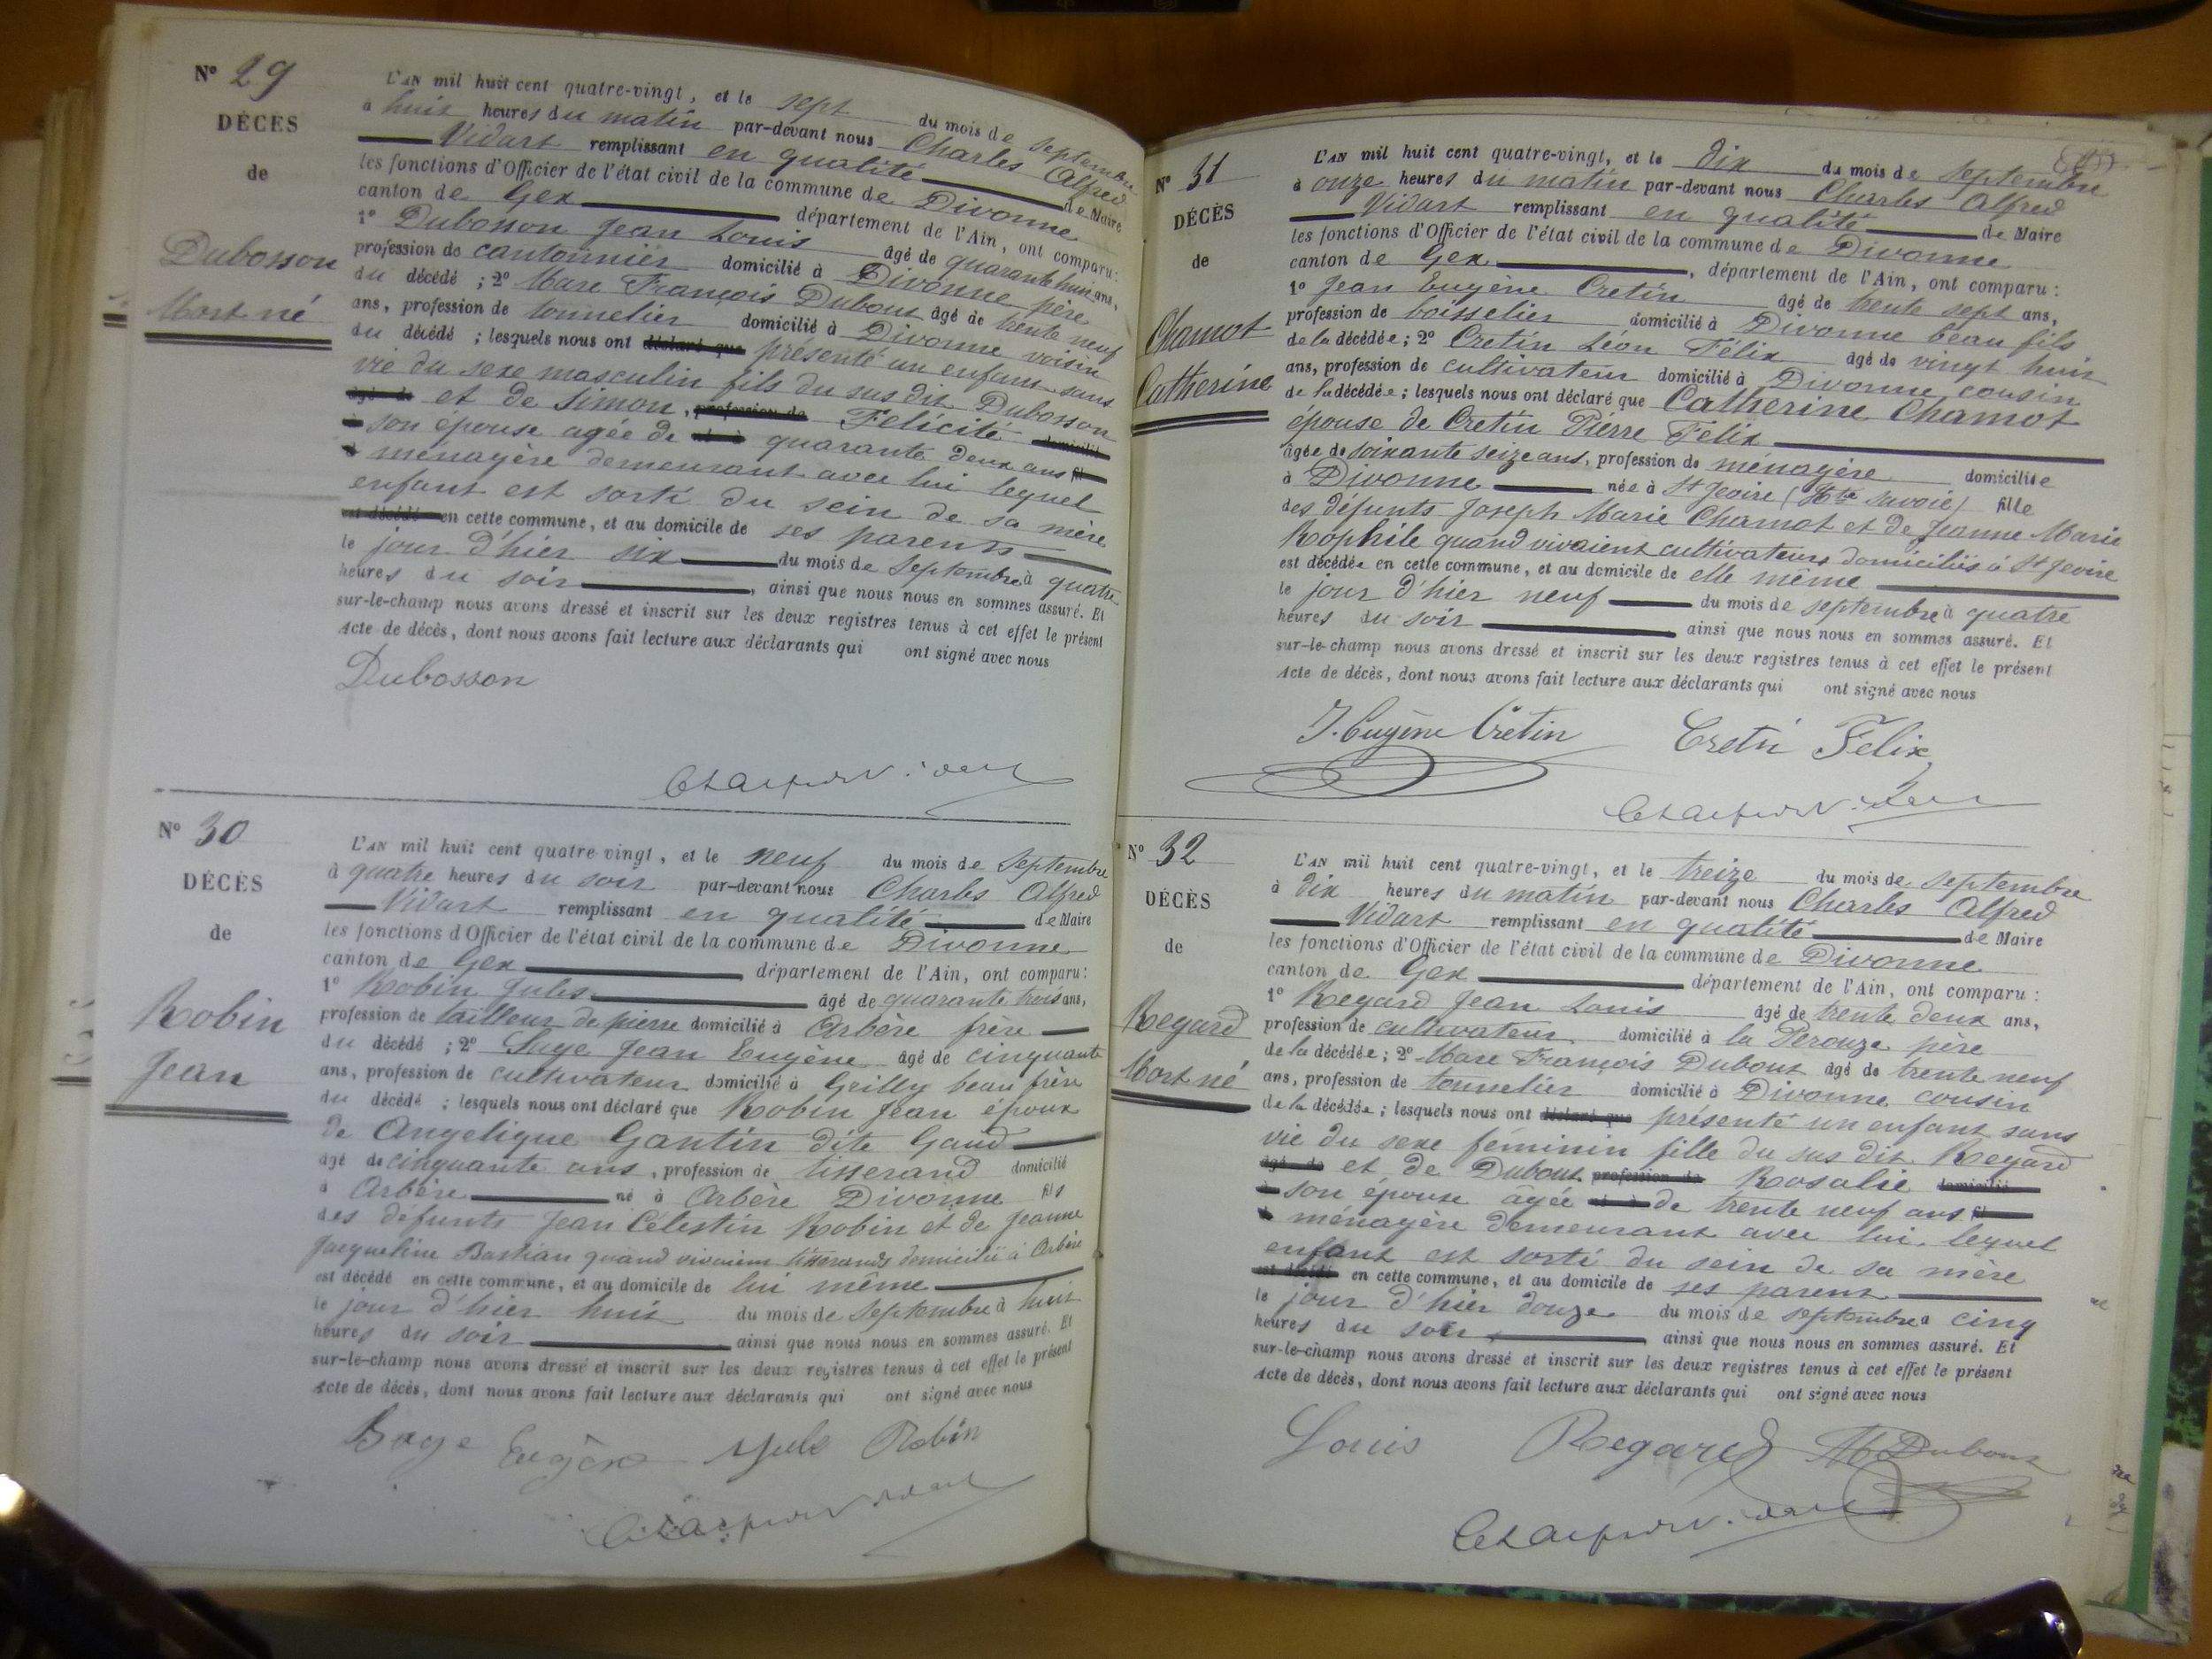 N° 29
DÉCES
de
Dubosson
Mort né
L'AN mil huit cent quatre-vingt, et le sept du mois de Septembre
à huit heures du matin par-devant nous Charles Alfred
Vidart remplissant en qualité de Maire
les fonctions d'Officier de l'état civil de la commune de Divonne
canton de Gex département de l'Ain, ont comparu :
1° Dubosson Jean Louis âgé de quarante huit ans,
profession de cantonnier domicilié à Divonne père
du décédé ; 2° Marc François Dubout âgé de trente neuf
ans, profession de tonnelier domicilié à Divonne voisin
du décédé ; lesquels nous ont déclaré que présenté un enfant sans
vie du sexe masculin fils du sus dit Dubosson
âgé de et de Simon, profession de Felicité domicilié
à son épouse agée de et à quarante deux ans fil
d ménagère demeurant avec lui lequel
enfant est sorti du sein de sa mère
est décédé en cette commune, et au domicile de ses parents
le jour d'hier six du mois de Septembre à quatre
heures du soir, ainsi que nous nous en sommes assuré. Et
sur-le-champ nous avons dressé et inscrit sur les deux registres tenus à cet effet le présent
Acte de décès, dont nous avons fait lecture aux déclarants qui ont signé avec nous
Dubosson
N° 30
DÉCÈS
de
Robin
Jean
L'AN mil huit cent quatre-vingt, et le neuf du mois de Septembre
à quatre heures du soir par-devant nous Charles Alfred
Vidart remplissant en qualité de Maire
les fonctions d'Officier de l'état civil de la commune de Divonne
canton de Gex département de l'Ain, ont comparu :
1° Robin Jules âgé de quarante trois ans,
profession de tailleur de pierre domicilié à Arbère frère
du décédé ; 2° Jean Eugène âgé de cinquante
ans, profession de cultivateur domicilié à Grilly beau frère
du décédé ; lesquels nous ont déclaré que Robin Jean époux
de Angelique Gantin dite Gaud
âgé de cinquante ans, profession de tisserand domicilié
à Arbère né à Arbère Divonne fils
des défunts Jean Célestin Robin et de Jeanne
Jacqueline Bastian quand vivaient tisserands domiciliés à Arbère
est décédé en cette commune, et au domicile de lui même
le jour d'hier huit du mois de Septembre à huit
heures du soir ainsi que nous nous en sommes assuré. Et
sur-le-champ nous avons dressé et inscrit sur les deux registres tenus à cet effet le présent
Acte de décès, dont nous avons fait lecture aux déclarants qui ont signé avec nous
Eugène Jule Robin
N° 31
DÉCÈS
de
Chamot
Catherine
L'AN mil huit cent quatre-vingt, et le dix du mois de Septembre
à onze heures du matin par-devant nous Charles Alfred
Vidart remplissant en qualité de Maire
les fonctions d'Officier de l'état civil de la commune de Divonne
canton de Gex, département de l'Ain, ont comparu :
1° Jean Eugène Cretin âgé de trente sept ans,
profession de boisselier domicilié à Divonne beau fils
de la décédée ; 2° Cretin Léon Félix âgé de vingt huit
ans, profession de cultivateur domicilié à Divonne cousin
de la décédée ; lesquels nous ont déclaré que Catherine Chamot
épouse de Cretin Pierre Felix
âgée de soixante seize ans, profession de ménagère domiciliée
à Divonne née à St Jeoire (Hte Savoie) fille
des défunts Joseph Marie Chamot et de Jeanne Marie
Rophile quand vivaient cultivateurs domiciliés à St Jeoire
est décédée en cette commune, et au domicile de elle même
le jour d'hier neuf du mois de septembre à quatre
heures du soir ainsi que nous nous en sommes assuré. Et
sur-le-champ nous avons dressé et inscrit sur les deux registres tenus à cet effet le présent
Acte de décès, dont nous avons fait lecture aux déclarants qui ont signé avec nous
J. Eugène Crétin Cretin Felix
N° 32
DÉCÈS
de
Regard
Mort né
L'AN mil huit cent quatre-vingt, et le treize du mois de Septembre
à dix heures du matin par-devant nous Charles Alfred
Vidart remplissant en qualité de Maire
les fonctions d'Officier de l'état civil de la commune de Divonne
canton de Gex département de l'Ain, ont comparu :
1° Regard Jean Louis âgé de trente deux ans,
profession de cultivateur domicilié à la Perouze père
de la décédée ; 2° Marc François Dubout âgé de trente neuf
ans, profession de tonnelier domicilié à Divonne cousin
de la décédée ; lesquels nous ont déclaré que présenté un enfant sans
vie du sexe féminin fille du sus dit Regard
âgé de et de Dubout profession de Rosalie domicilié
à son épouse agée et à de trente neuf ans fil
d ménagère demeurant avec lui, lequel
enfant est sorti du sein de sa mère
est décédé en cette commune, et au domicile de ses parent
le jour d'hier douze du mois de septembre à cinq
heures du soir, ainsi que nous nous en sommes assuré. Et
sur-le-champ nous avons dressé et inscrit sur les deux registres tenus à cet effet le présent
Acte de décès, dont nous avons fait lecture aux déclarants qui ont signé avec nous
Louis Regard M Dubout